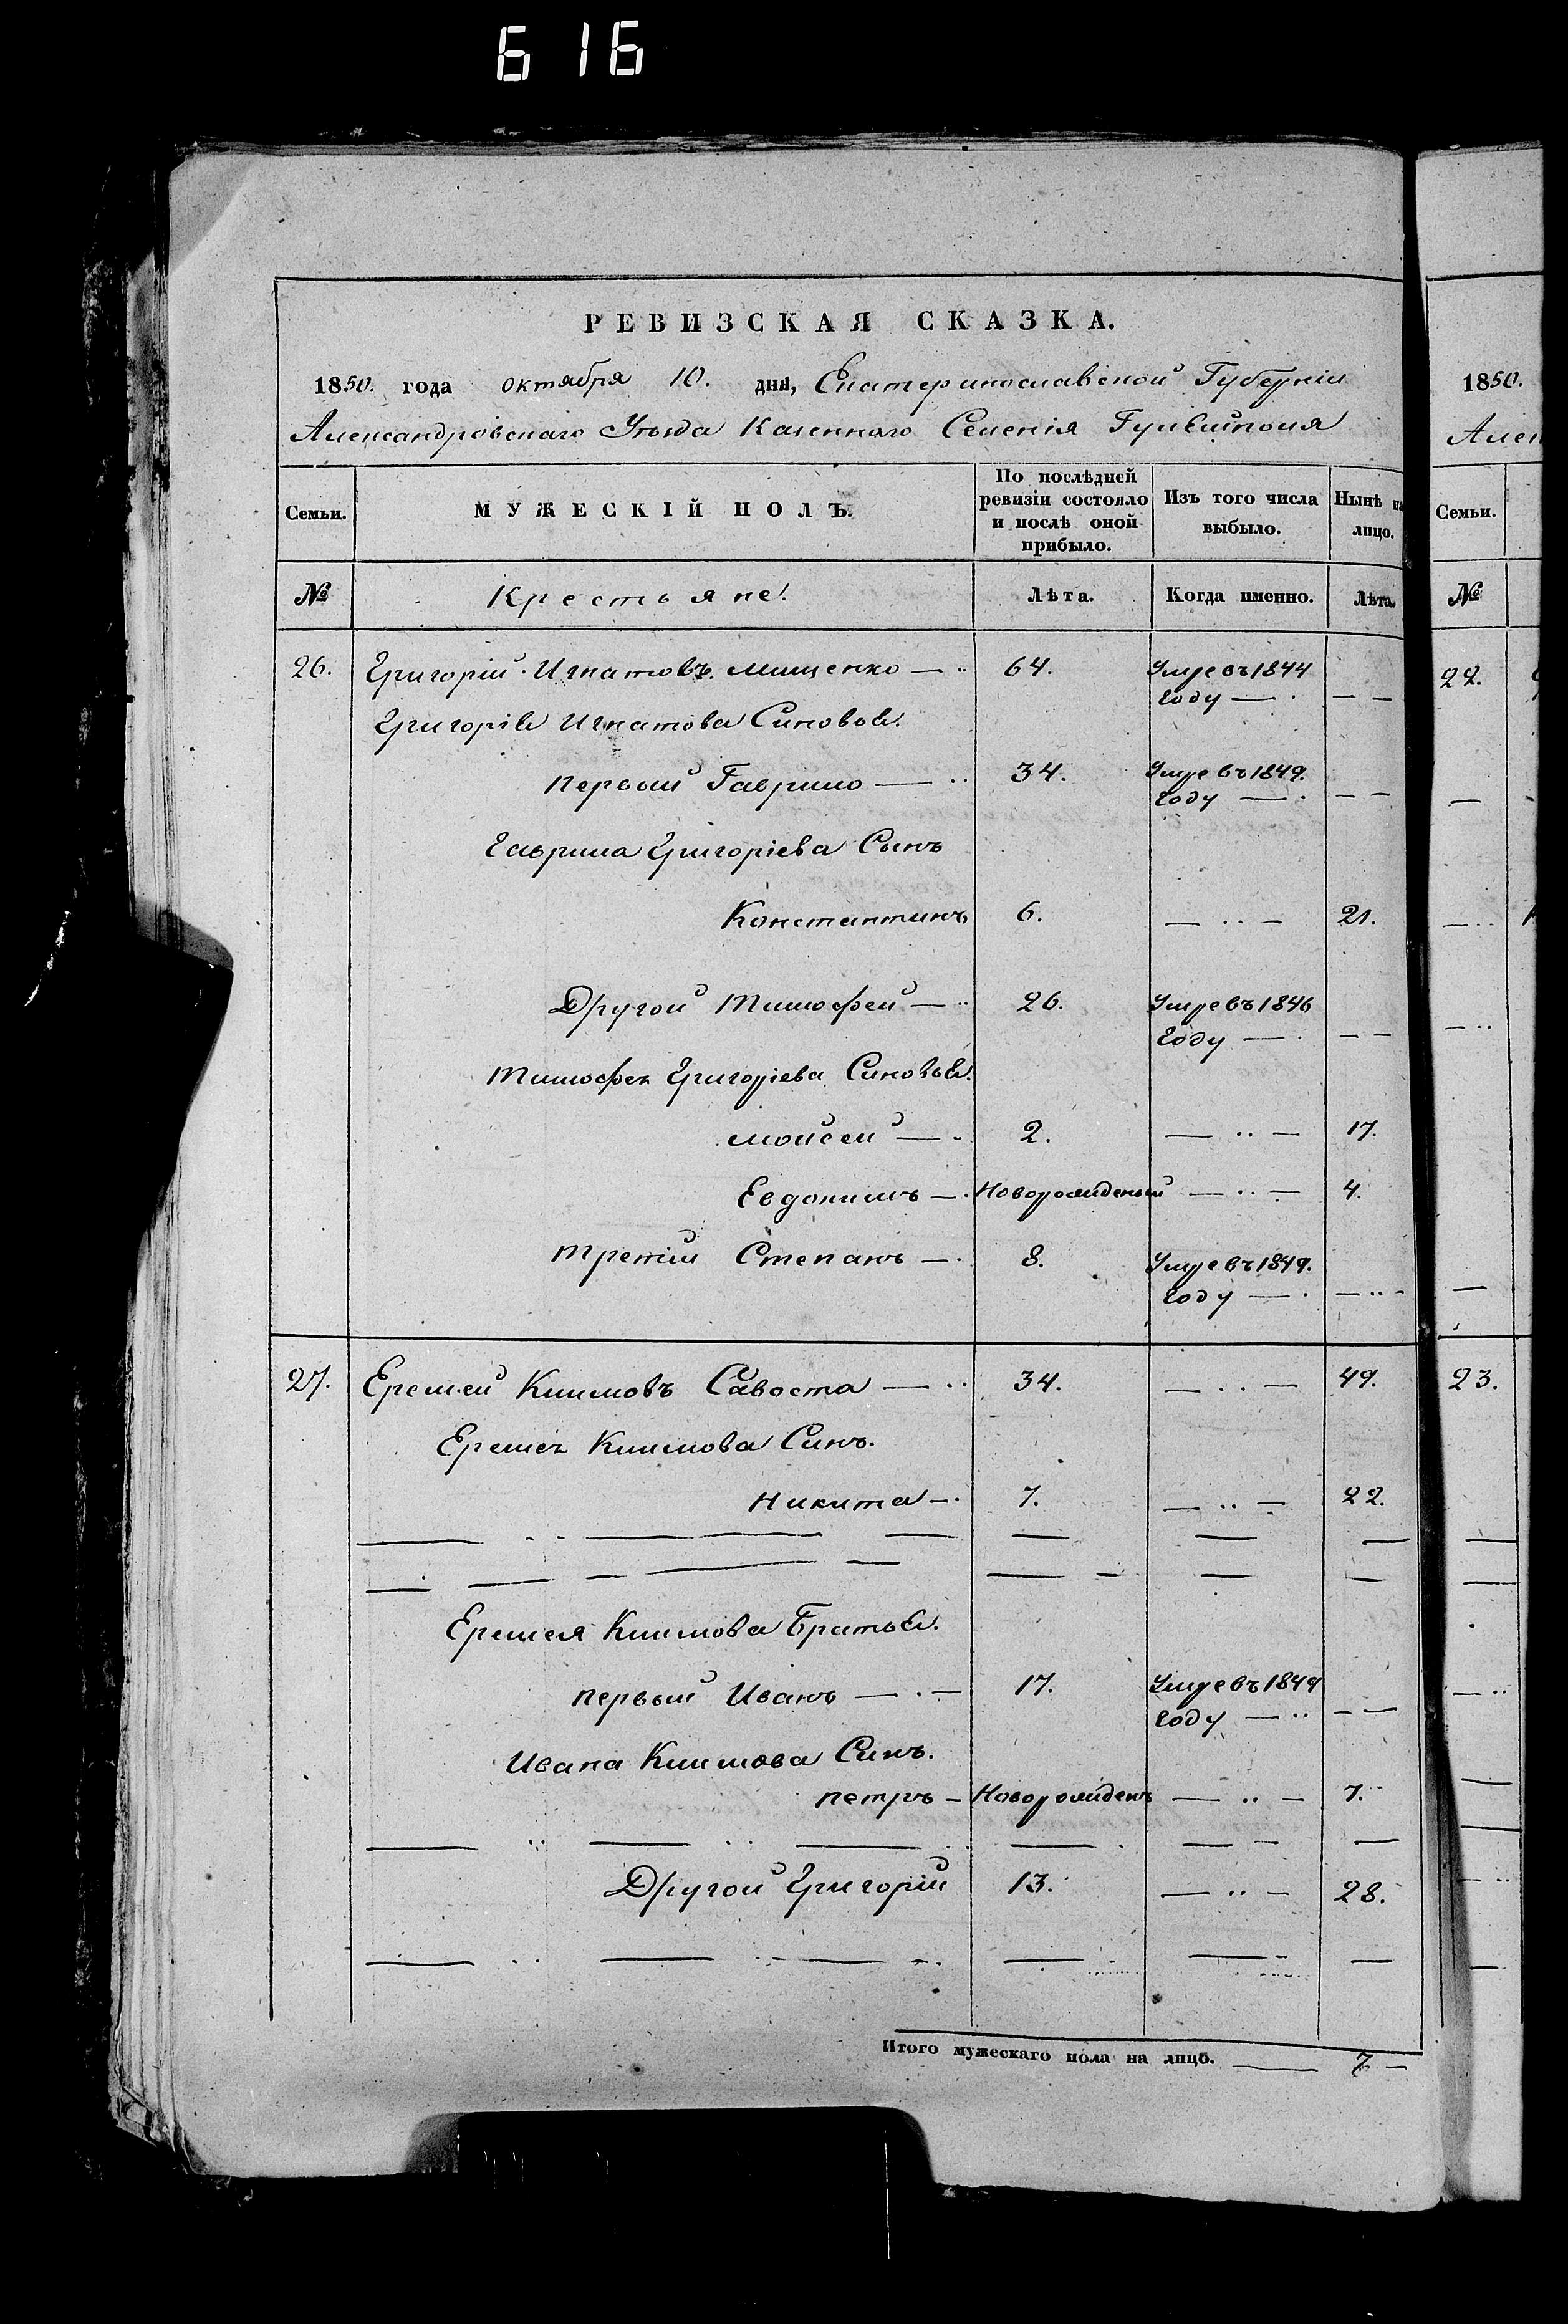 616
РЕВИЗСКАЯ СКАЗКА.
1850. года октября 10. дня, Екатеринославской Губерніи
Александровскаго Уѣзда Казеннаго Селенія Гуляйполя
Семьи. МУЖЕСКІЙ ПОЛЪ. По послѣдней ревизіи состояло и послѣ оной прибыло. Изъ того числа выбыло. Нынѣ на лицо.
№ Крестьяне. Лѣта. Когда именно. Лѣта.
26. Григорій Игнатовъ Мищенко — 64. Умре въ 1844
году — . — —
Григорія Игнатова Синовья.
первый Гаврило — 34. Умре въ 1849.
году — . — —
Гаврила Григоріева Сынъ
Константинъ 6. — .. — 21.
Другой Тимофей — 26. Умре въ 1846
году — . — —
Тимофея Григоріева Синовья.
Мойсей — 2. — .. — 17.
Евдокимъ — . Новорожденый — .. — 4.
третій Степанъ — . 8. Умре въ 1849.
году — . — .. —
27. Еремей Климовъ Савоста — .. 34. — .. — 49.
Еремея Климова Синъ.
Никита — . 7. — .. — 22.
Еремея Климова Братья.
первый Иванъ — . — 17. Умре въ 1849
году — .. — —
Ивана Климова Синъ.
петръ — Новорожденъ — .. — 7.
Другой Григорій 13. — .. — 28.
Итого мужескаго пола на лицо. — 7 —
1850.
Алек
Семьи.
№
22.
23.